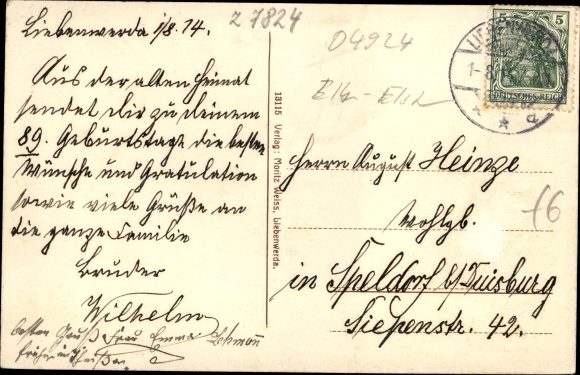 Liebenwerda 1/8. 14.
z 7824
04924
Aus der alten Heimat
sendet dir zu deinem
89. Geburtstage die besten
Wünsche und Gratulation
sowie viele Grüße an
die ganze Familie
Bruder
Wilhelm
besten Gruß Frau Emma Lehmann
früher in
18115 Verlag: Moritz Weiss, Liebenwerda.
5
DEUTSCHES REICH
LIEBENWERDA
Herrn August Heinze
Wohlgb.
in Speldorf b/Duisburg
Siepenstr. 42.